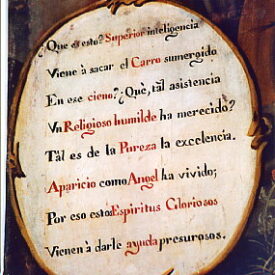 ¿Que es esto? Superior inteligencia
Viene à sacar el Carro sumergido
En ese cieno? ¿Què, tál asistencia
Vn Religioso humilde ha merecido?
Tál es de la Pureza la excelencia.
Aparicio como Angel ha vivido;
Por eso estos Espiritus Gloriosos
Vienen à darle ayuda presurosos.